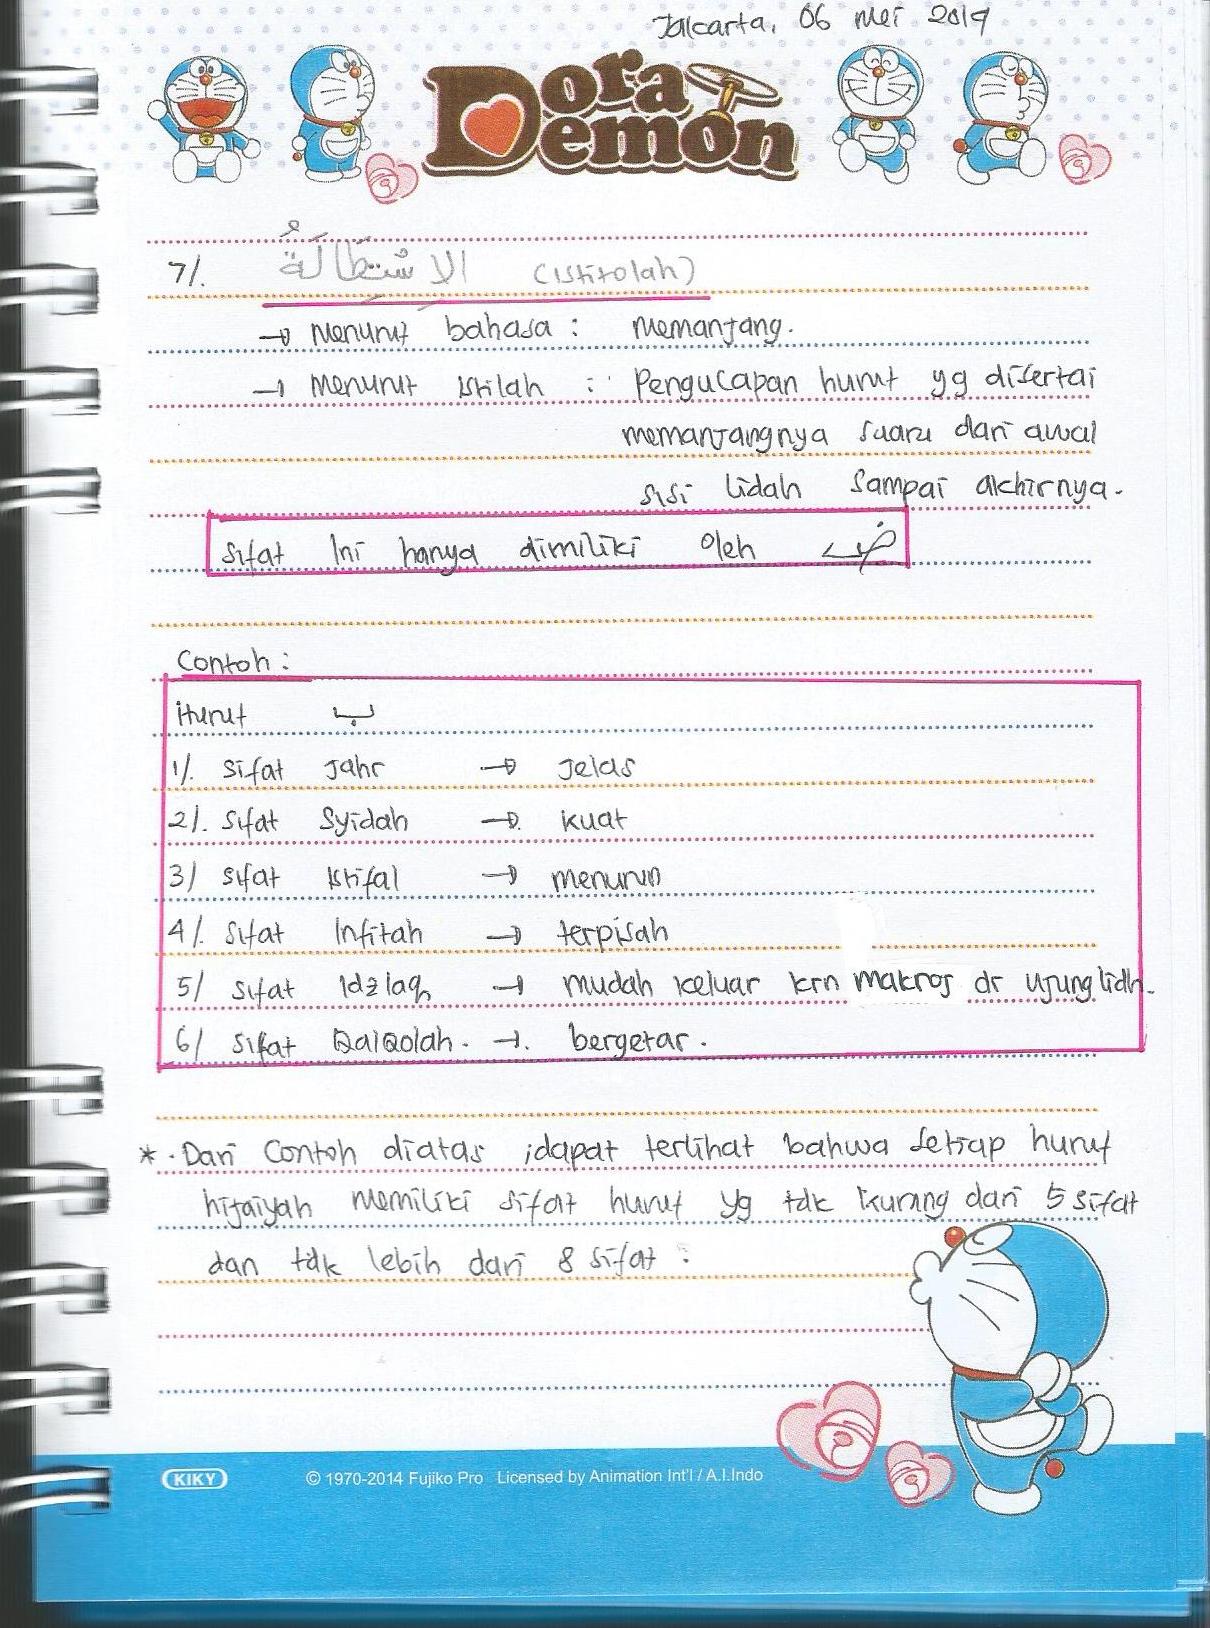 Jakarta, 06 Mei 2019
Dora
Demon
7/. الاِسْتِطَالَةُ (Istitolah)
→ Menurut bahasa : memanjang.
→ Menurut Istilah : Pengucapan huruf yg disertai
memanjangnya suara dari awal
sisi lidah sampai akhirnya.
Sifat Ini hanya dimiliki oleh ض
Contoh :
Huruf ب
1/. Sifat Jahr → Jelas
2/. Sifat Syidah → kuat
3/ Sifat Istifal → menurun
4/. Sifat Infitah → terpisah
5/ Sifat Idzlaq → mudah keluar krn makroj dr ujung lidh.
6/ Sifat Qalqolah. → bergetar.
* . Dari Contoh diatas ;dapat terlihat bahwa setiap huruf
hijaiyah memiliki sifat huruf yg tdk kurang dari 5 sifat
dan tdk lebih dari 8 sifat :
KIKY © 1970-2014 Fujiko Pro Licensed by Animation Int'l / A.I.Indo